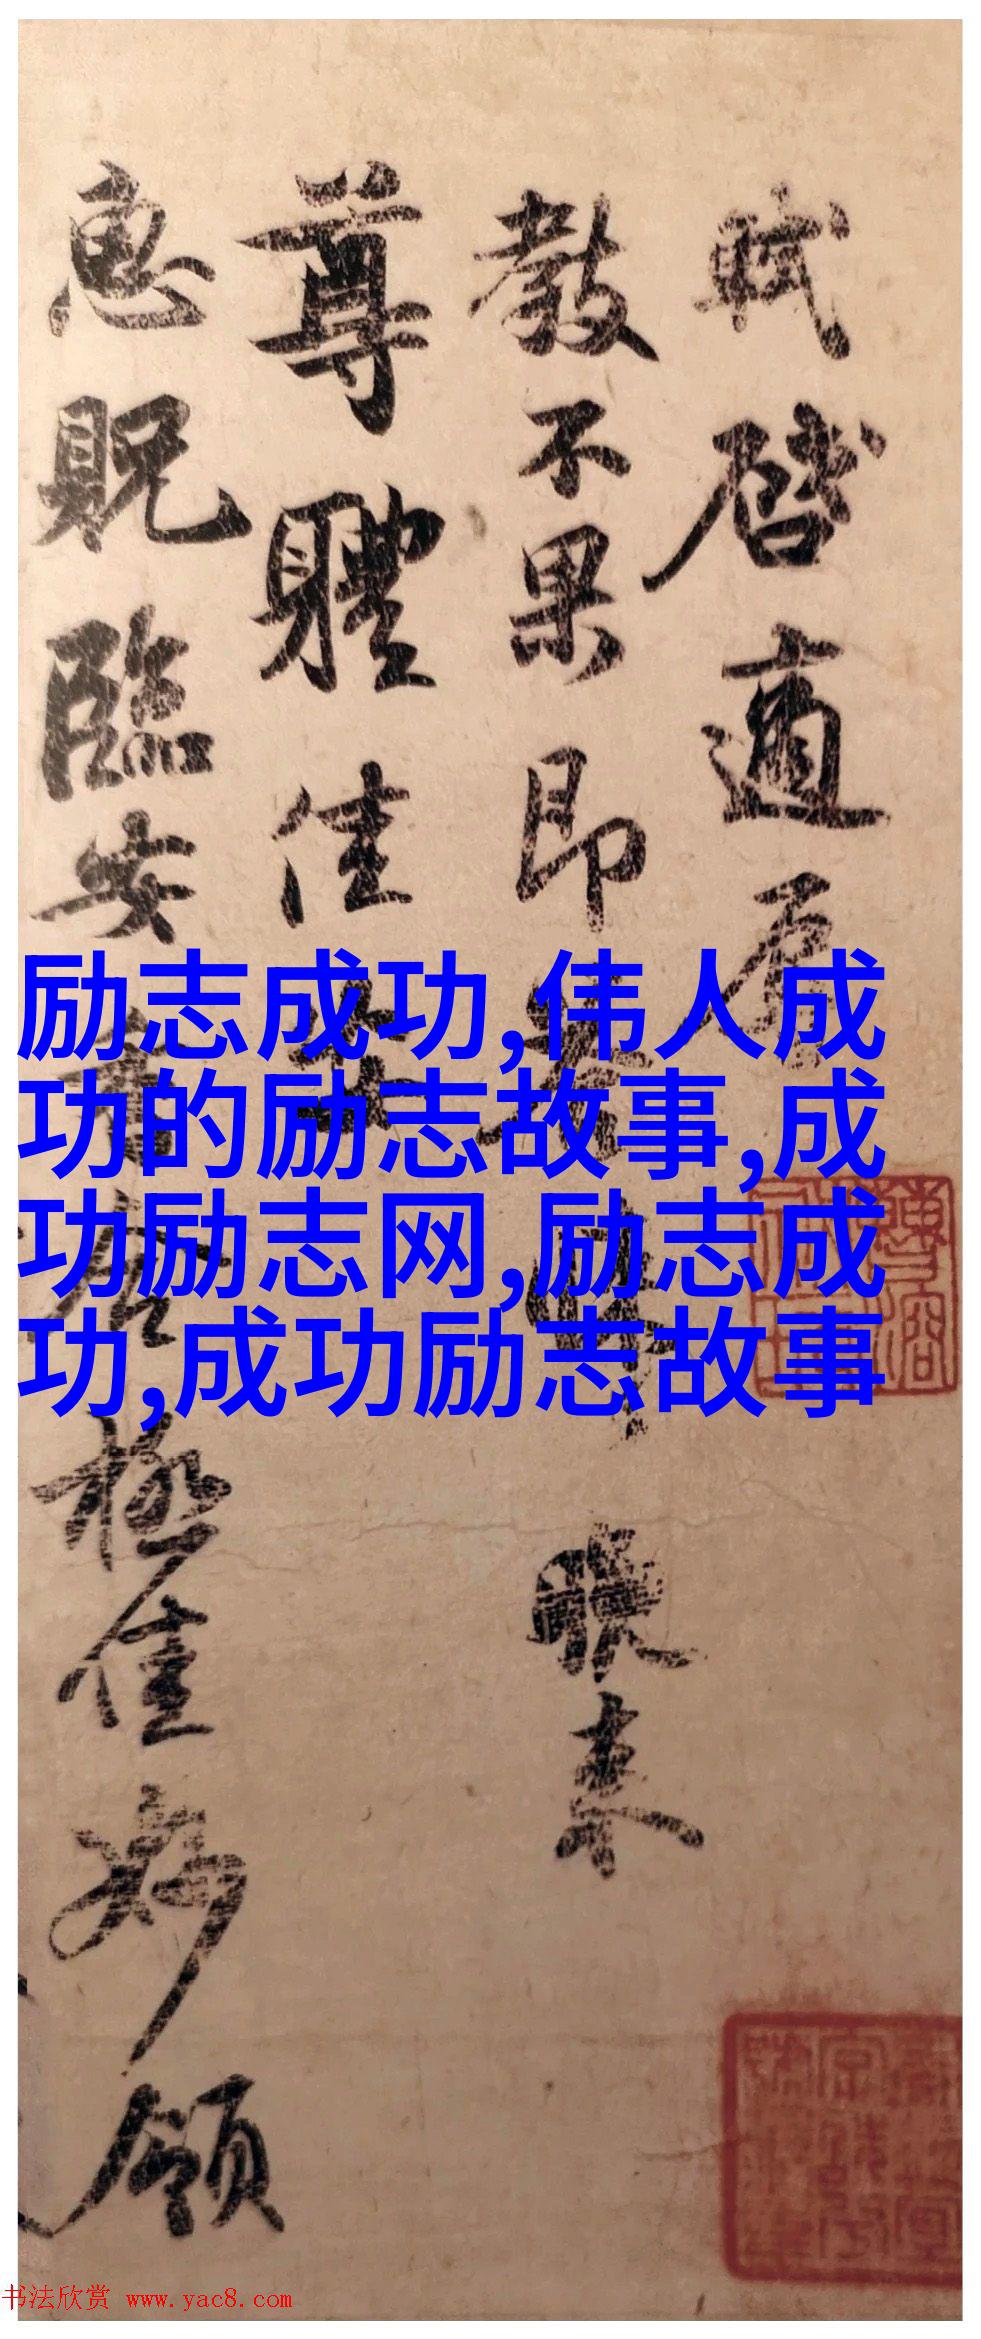 軾啓適辱
教不果即答晚来
尊體佳安
惠貺臨安香合極佳妙領
励志成功,伟人成
功的励志故事,成
功励志网,励志成
功,成功励志故事
书法欣赏 www.yac8.com